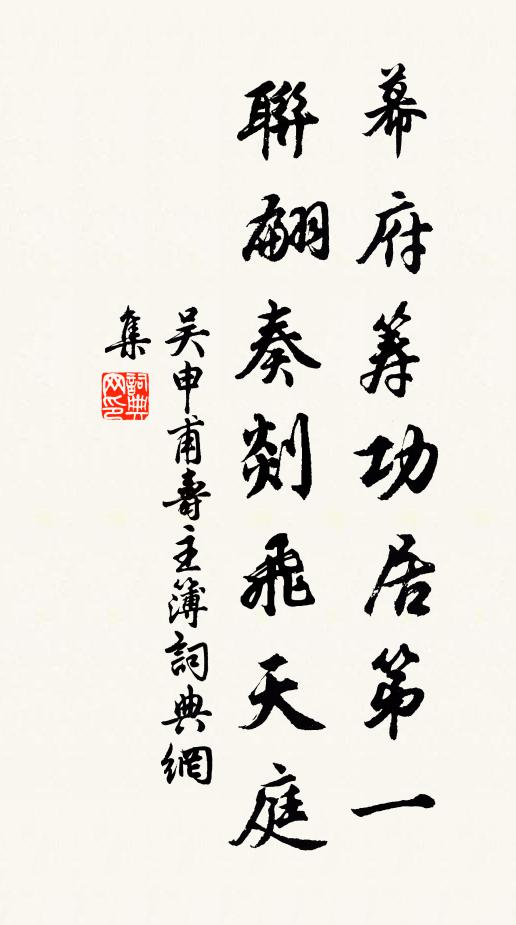 幕府筹功居第一
聯翩奏剡飛天庭
吴申甫壽主簿詞典網
集
詞典网印